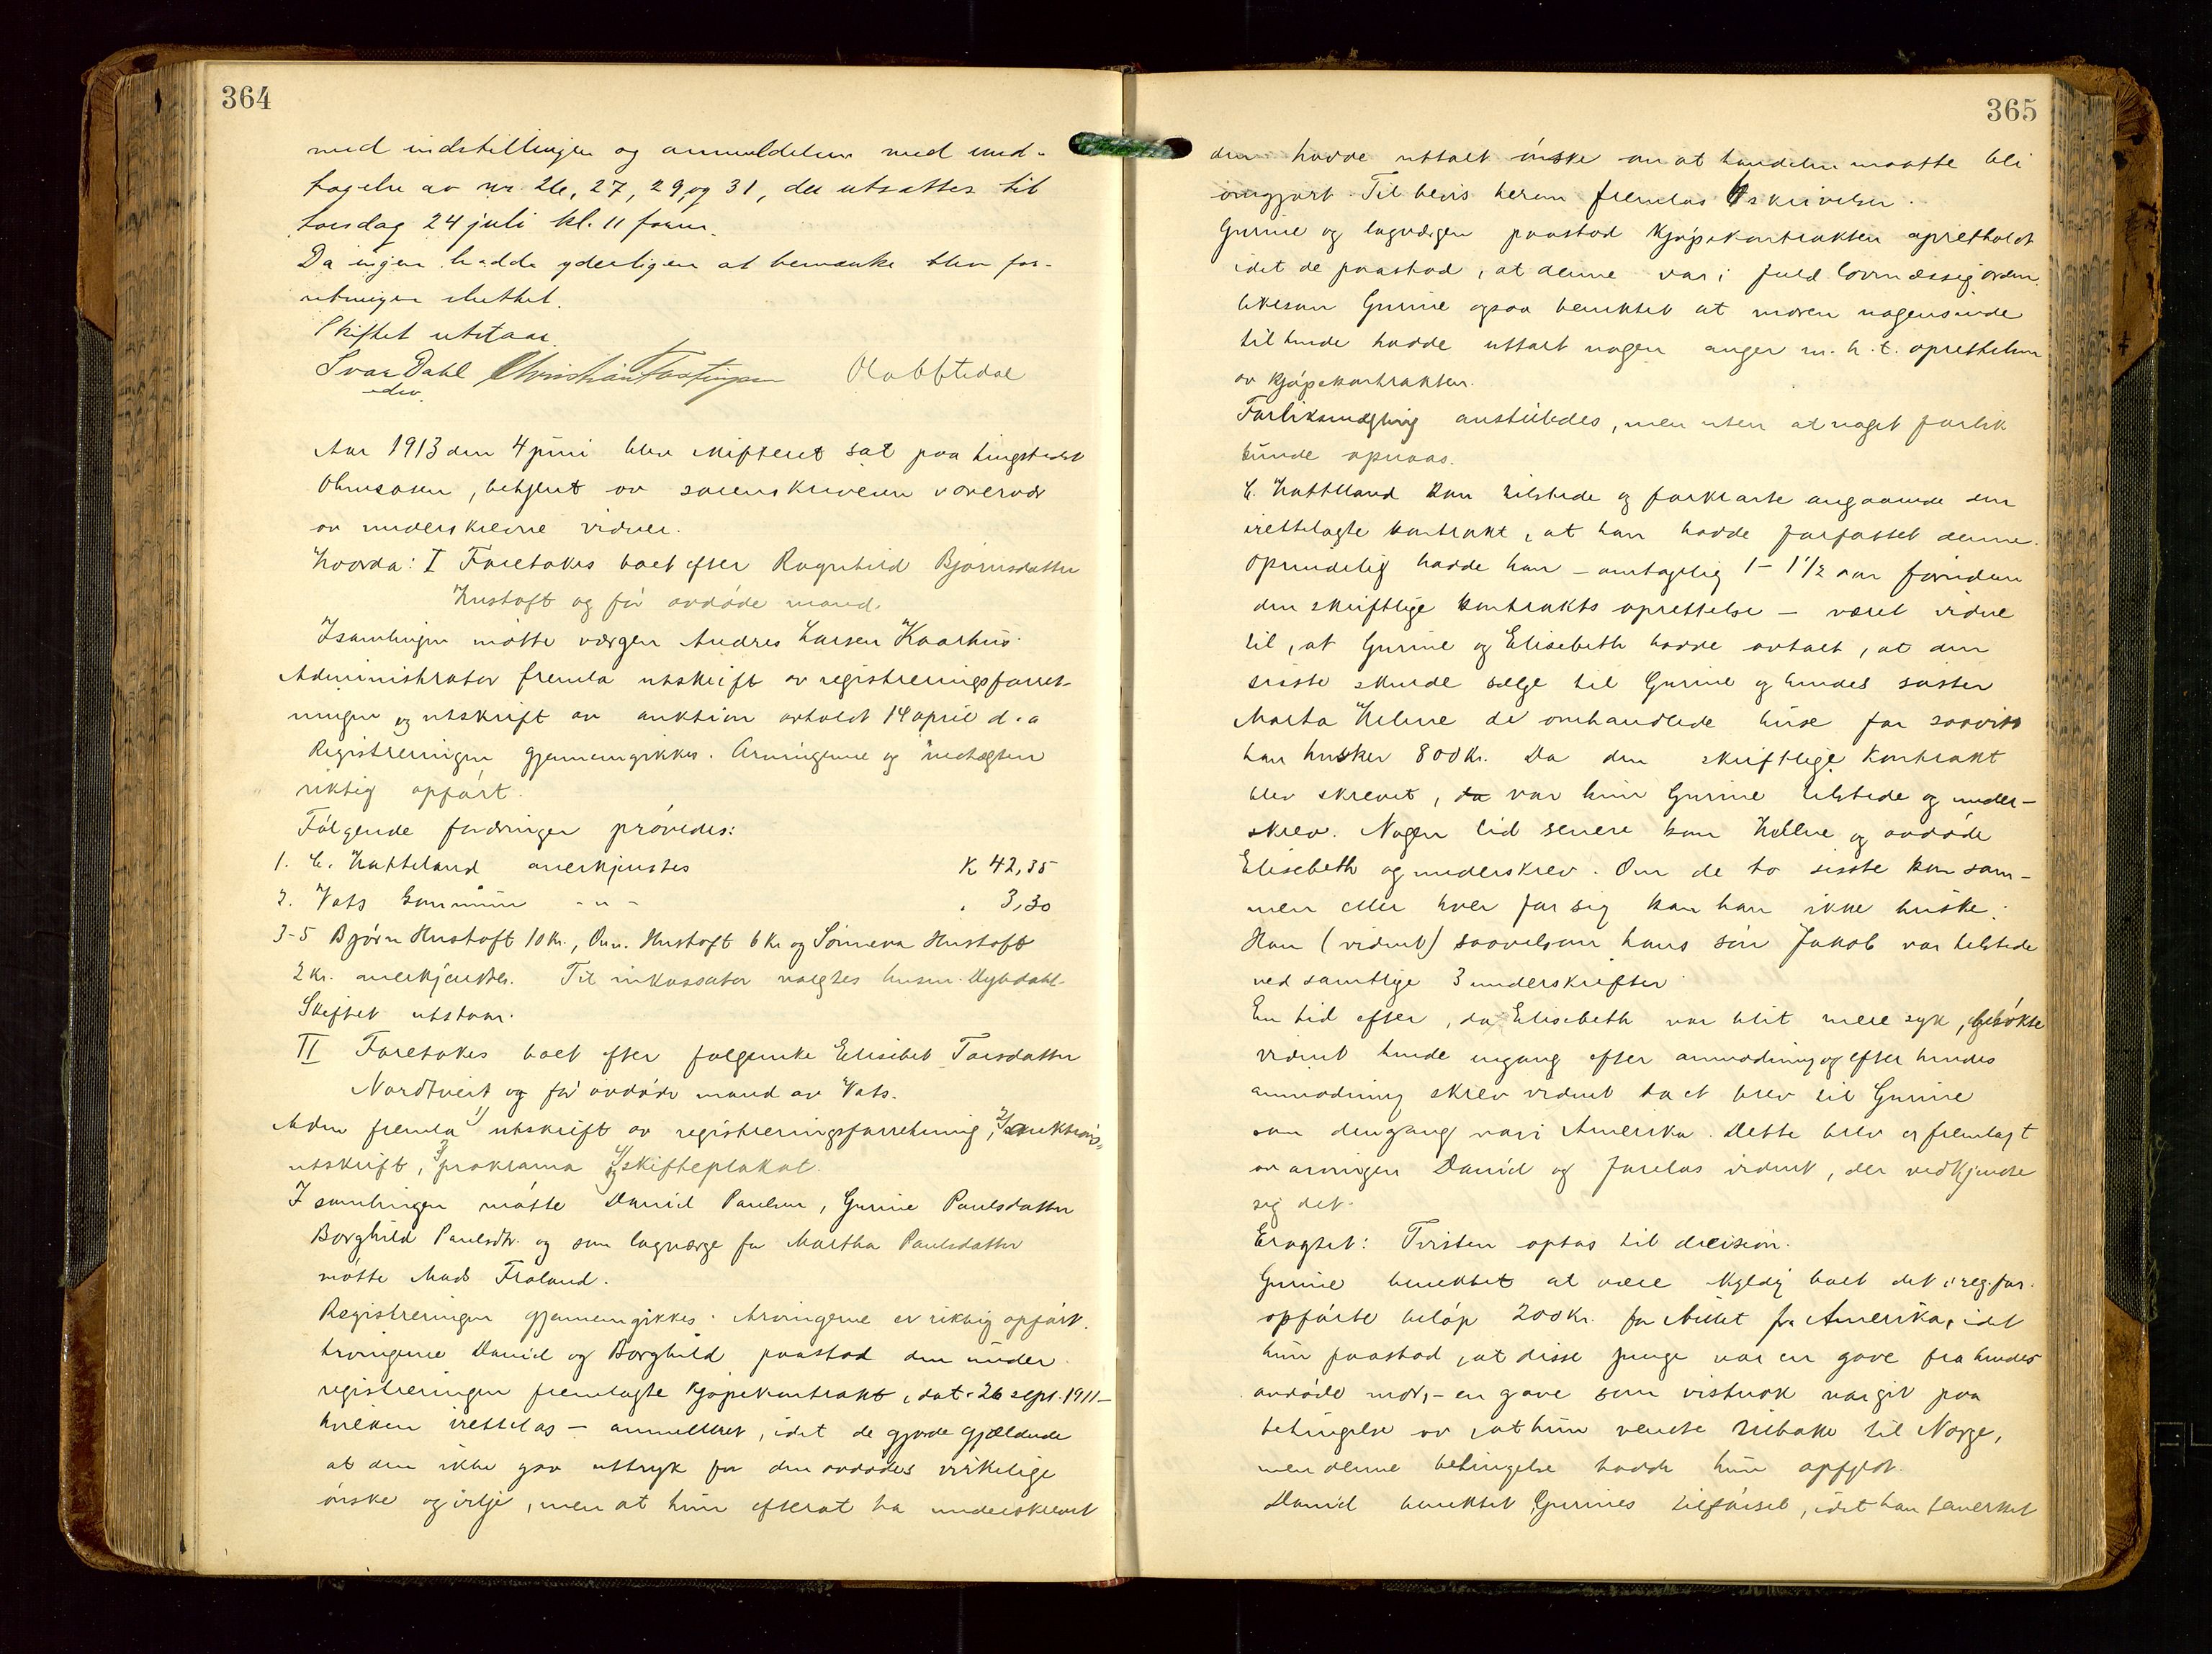 364
med indstillingen og anmeldelsen med und-
tagelse av nr. 26, 27, 29, og 31, der utsattes til
torsdag 24 juli kl. 11 form.
Da ingen hadde yderligere at bemerke blev for-
retningen sluttet.
Skiftet utstaar.
Ivar Dahl Christian Olabbtedal
edsv.
Aar 1913 den 4 juni blev skifteret sat paa tingstedet
Ølensosen, betjent av sorenskriveren i overvær
av underskrevne vidner.
Hvorda: I Foretokes boet efter Ragnhild Bjørnsdatter
Hustoft og før avdøde mand.
I samlingen møtte værgen Andres Larsen Kaarhus.
Administrator fremla utskrift av registreringsforret-
ningen og utskrift av auktion avholdt 14 april d.a
Registreringen gjennemgikkes. Arvingerne og indtægten
riktig opført.
Følgende fordringer prøvedes:
1. C. Hatteland anerkjendtes K 42,35
2. Vats kommune -"- " 3,30
3-5 Bjørn Hustoft 10 Kr., Hustoft 6 Kr og Sønneva Hustoft
2 Kr. anerkjendtes. Til inkassator valgtes husm. Dybdahl.
Skiftet utstaar.
II Foretokes boet efter folgeenke Elisabet Torsdatter
Nordtveit og før avdøde mand av Vats.
Adm fremla 1) utskrift av registreringsforretning, 2) auktions-
utskrift, 3) proklama og 4) skifteplakat.
I samlingen møtte Daniel Paulsen, Gurine Paulsdatter
Borghild Paulsdtr. og som lagværge for Martha Paulsdatter
møtte Mads Frøland.
Registreringen gjennemgikkes. Arvingerne er riktig opført.
Arvingerne Daniel og Borghild paastod den under
registreringen fremlagte kjøpekontrakt, dat. 26 sept. 1911 –
hvilken irettelas – annulleret, idet de gjorde gjældende
at den ikke gav uttryk for den avdødes virkelige
ønske og vilje, men at hun efterat ha underskrevet
365
den hadde uttalt ønske om at handelen maatte bli
omgjort. Til bevis herom fremlas skrivelser.
Gurine og lagværgen paastod kjøpekontrakten opretholdt
idet de paastod, at denne var i fuld lovmæssig orden,
likesom Gurine ogsaa benektet at moren nogensinde
til hende hadde uttalt nogen anger m.h.t. oprettelsen
av kjøpekontrakten.
Forliksmægling anstilledes, men uten at noget forlik
kunde opnaas.
C. Hatteland kom tilstede og forklarte angaaende den
irettelagte kontrakt, at han hadde forfattet denne.
Oprindelig hadde han – antagelig 1 – 1 1/2 aar forinden
den skriftlige kontrakts oprettelse – været vidne
til, at Gurine og Elisabeth hadde avtalt, at den
sisste skulde sælge til Gurine og hendes søster
Marta Helene de omhandlede huse for saavidt
han husker 800 Kr. Da den skriftlige Kontrakt
blev skrevet, da var hun Gurine tilstede og under-
skrev. Nogen tid senere kom Helene og avdøde
Elisebeth og underskrev. Om de to sisste kom sam-
men eller hver for sig kan han ikke huske.
Han (vidnet) saavelsom hans søn Jakob var tilstede
ved samtlige 3 underskrifter.
En tid efter, da Elisebeth var blit mere syk, besøkte
vidnet hende engang efter anmodning og efter hendes
anmodning skrev vidnet da et brev til Gurine
som dengang var i Amerika. Dette brev er fremlagt
av arvingen Daniel og forelas vidnet, der vedkjendte
sig det.
Eragtet: Tvisten optas til decision.
Gurine benektet at være skyldig boet det i reg.for.
opførte beløp 200 Kr. for billet fra Amerika, idet
hun paastod, at disse penge var en gave fra hendes
avdøde mor, – en gave som vistnok var git paa
betingelse av, at hun vendte tilbake til Norge,
men denne betingelse hadde hun opfyldt.
Daniel benektet Gurines tilførsel, idet han bemerket